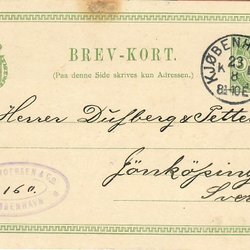 BREV-KORT.
(Paa denne Side skrives kun Adressen.)
KJØBENH
23
K 8
Herrer Dufberg & Petter
Jönköping
Sve
& CO.
160.
BENHAVN